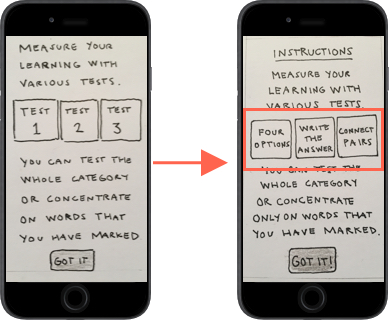 MEASURE YOUR
LEARNING WITH
VARIOUS TESTS.
TEST 1
TEST 2
TEST 3
YOU CAN TEST THE
WHOLE CATEGORY
OR CONCENTRATE
ON WORDS THAT
YOU HAVE MARKED.
GOT IT
INSTRUCTIONS
MEASURE YOUR
LEARNING WITH
VARIOUS TESTS.
FOUR OPTIONS
WRITE THE ANSWER
CONNECT PAIRS
YOU CAN TEST THE
WHOLE CATEGORY
OR CONCENTRATE
ONLY ON WORDS THAT
YOU HAVE MARKED.
GOT IT!